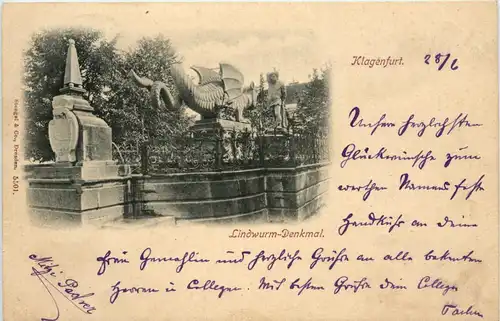 Klagenfurt.
28/6
Stengel & Co., Dresden. 5501.
Lindwurm-Denkmal.
Unsere herzlichsten
Glückwünsche zum
werthen Namensfest
Handkuß an deine
Frau Gemahlin und herzliche Grüße an alle bekannten
Herren u Collegen. Mit besten Grüßen dein College